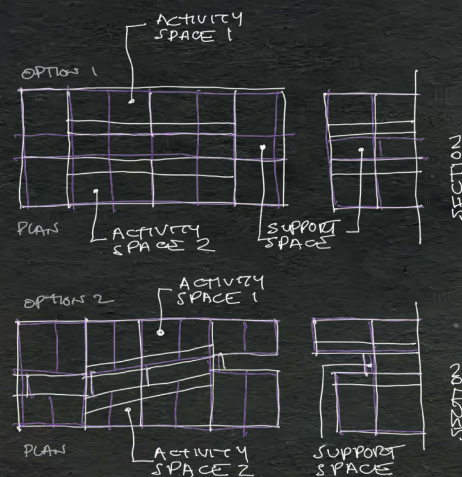 ACTIVITY
SPACE 1
OPTION 1
SECTION
PLAN
ACTIVITY
SPACE 2
SUPPORT
SPACE
ACTIVITY
SPACE 1
OPTION 2
SECTION
PLAN
ACTIVITY
SPACE 2
SUPPORT
SPACE